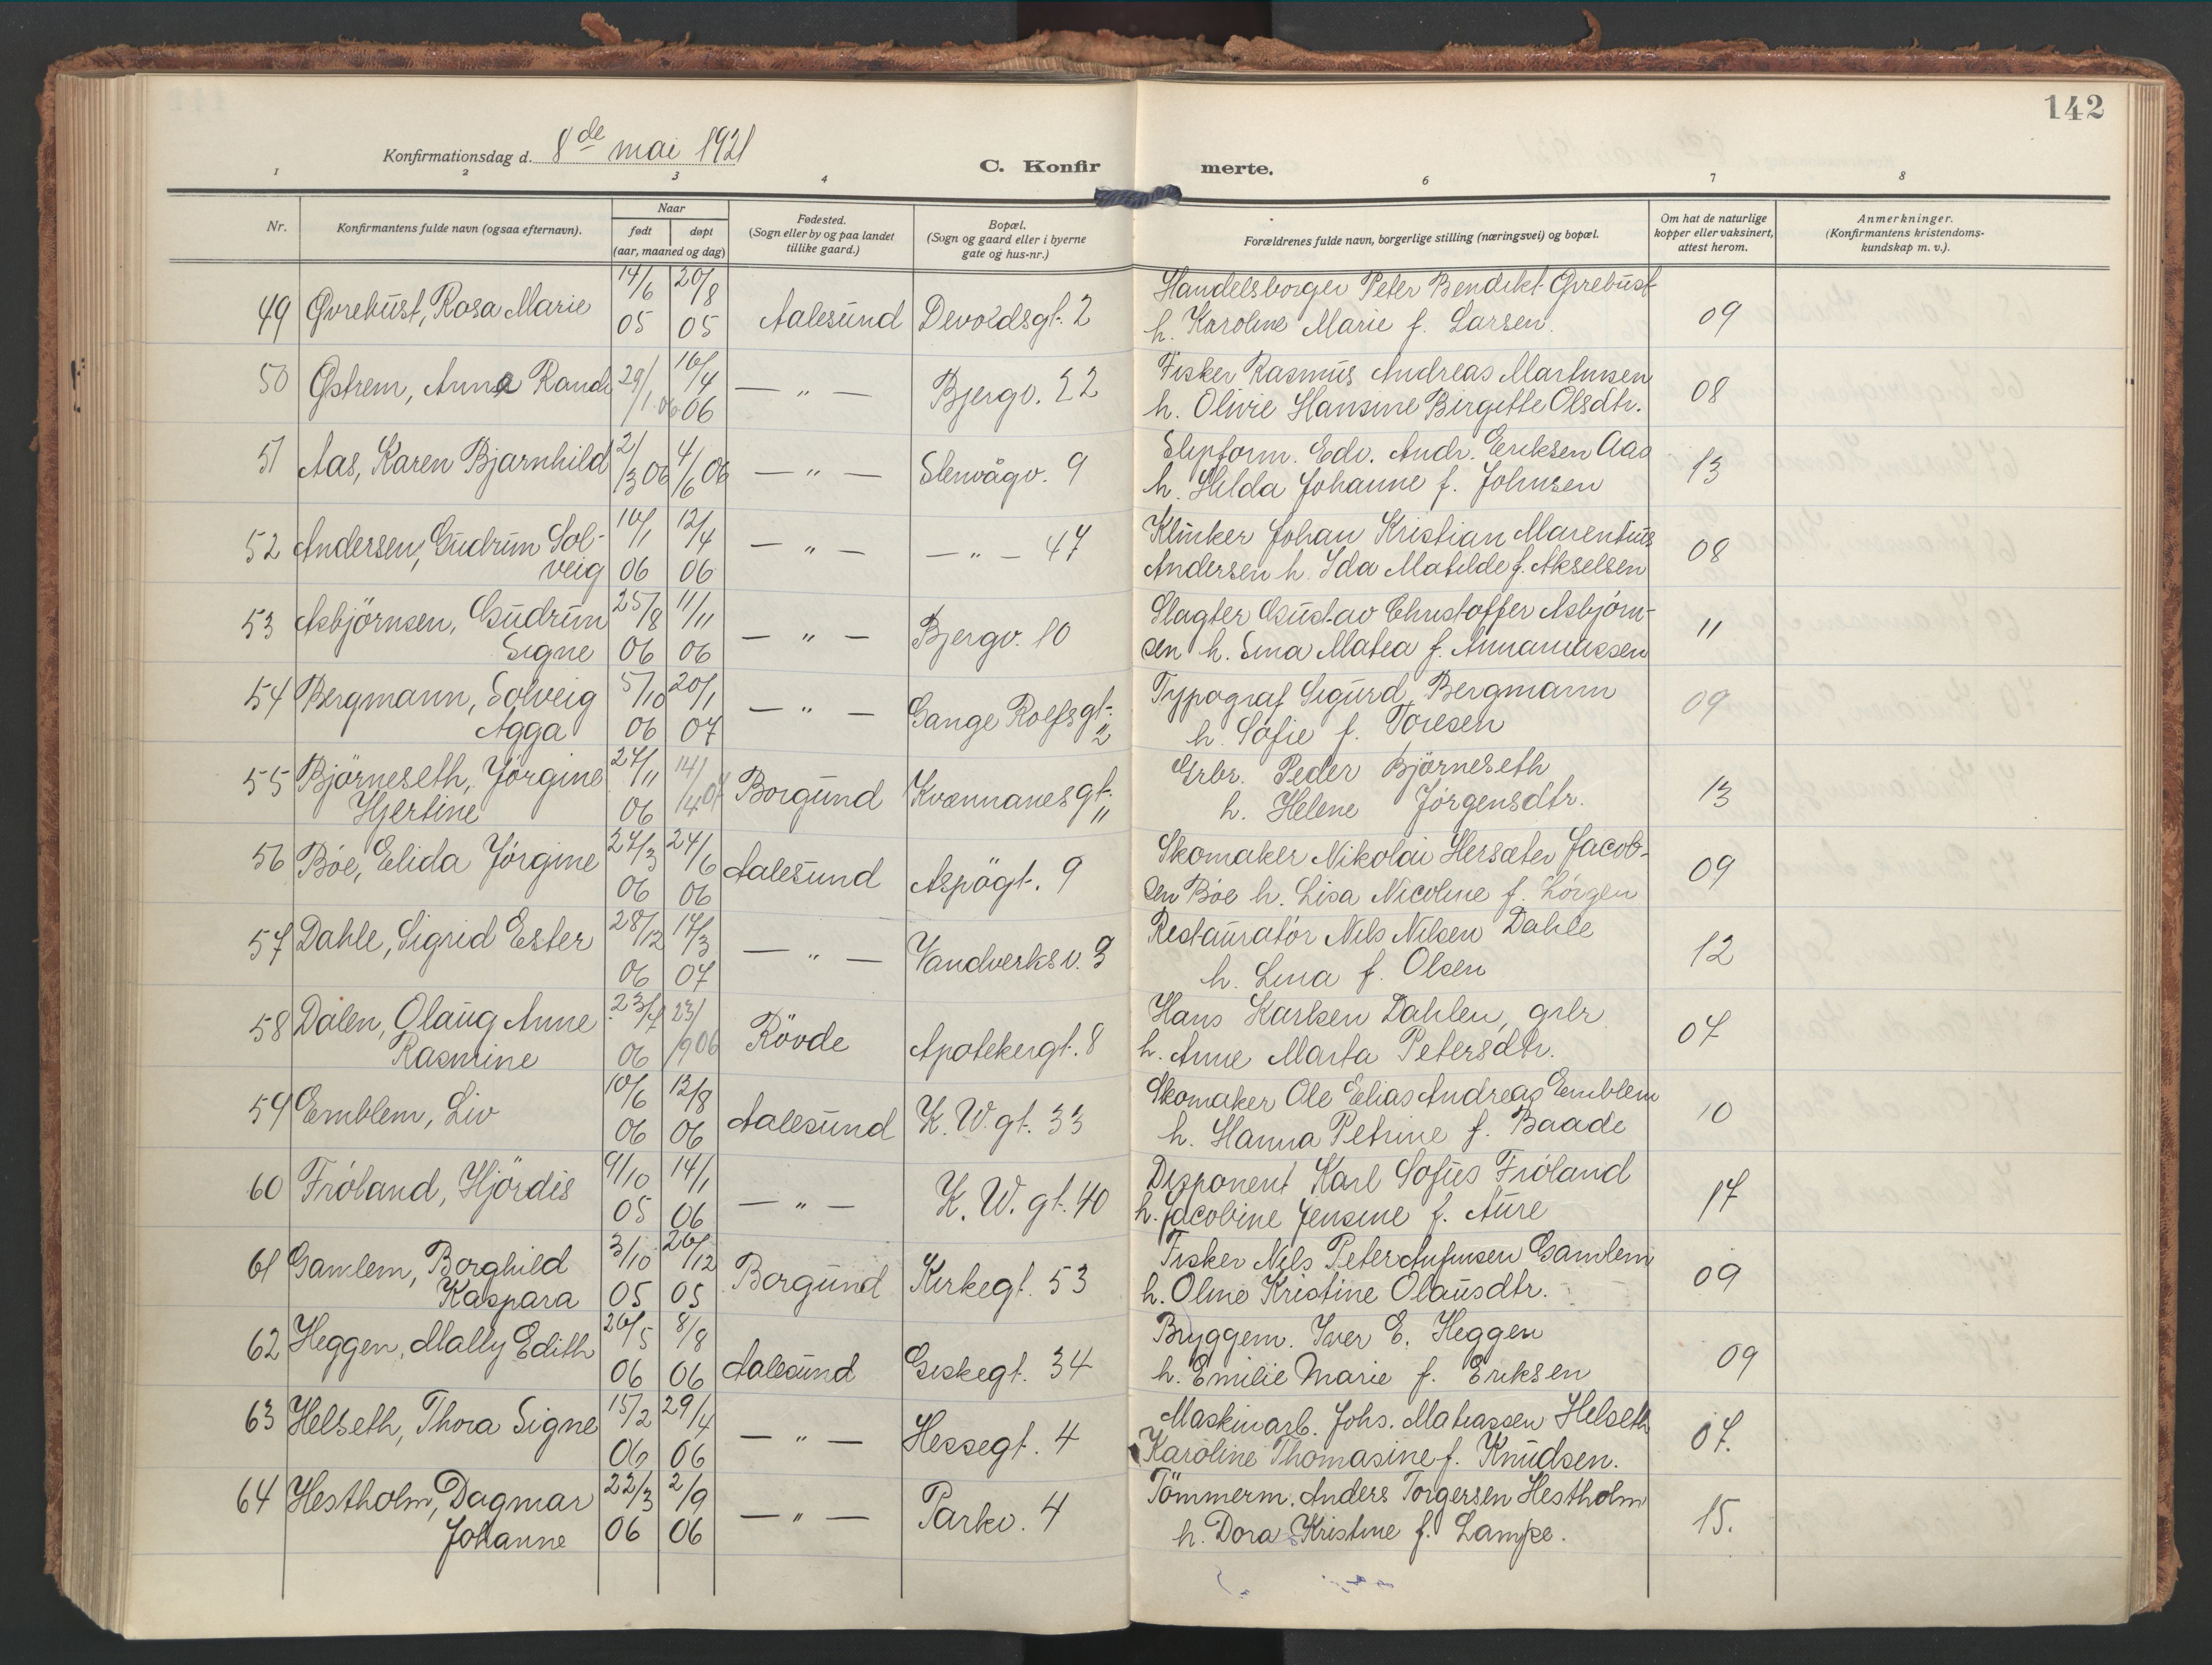 142
Konfirmationsdag d. 8de mai 1921
C. Konfirmerte.
1 2 3 4 6 7 8
Nr.
Konfirmantens fulde navn (ogsaa efternavn).
Naar
født døpt
(aar, maaned og dag)
Fødested.
(Sogn eller by og paa landet
tillike gaard.)
Bopæl.
(Sogn og gaard eller i byerne
gate og hus-nr.)
Forældrenes fulde navn, borgerlige stilling (næringsvei) og bopæl.
Om hat de naturlige
kopper eller vaksinert,
attest herom.
Anmerkninger.
(Konfirmantens kristendoms-
kundskap m. v.).
14/6 20/8 Handelsborger Peter Bendikt Øvrebust
49 Øvrebust, Rosa Marie 05 05 Aalesund Devoldsgt. 2 h. Karoline Marie f. Larsen. 09
50 Østrem, Anna Randi 29/1 06 16/4 06 — " — Bjergv. 22 Fisker Rasmus Andreas Martinusen 08
h. Olivie Hansine Birgitte Olsdtr.
51 Aas, Karen Bjarnhild 2/3 06 4/6 06 — " — Stenvågv. 9 Slipform. Edv. Andr. Eriksen Aas 13
h. Hilda Johanne f. Johnsen
52 Andersen, Gudrun Sol- 10/1 12/4 — " — — " — 47 Klinker Johan Kristian Marentius 08
veig 06 06 Andersen h. Ida Matilde f. Akselsen
53 Asbjörnsen, Gudrun 25/8 11/11 — " — Bjergv. 10 Slagter Gustav Christoffer Asbjörn- 11
Signe 06 06 sen h. Sina Matea f. Ananiassen
54 Bergmann, Solveig 5/10 20/1 — " — Gange Rolfsgt. 2 Typograf Sigurd Bergmann 09
Agga 06 07 h. Sofie f. Toresen
55 Björneseth, Jörgine 27/11 14/4 07 Borgund Kvennanesgt. 11 Grbr. Peder Björneseth 13
Hjertine 06 h. Helene Jörgensdtr.
56 Böe, Elida Jörgine 27/3 24/6 Aalesund Aspögt. 9 Skomaker Nikolai Hersæter Jacob- 09
06 06 sen Böe h. Lisa Nicoline f. Lörgen
57 Dahle, Sigrid Ester 28/12 17/3 — " — Vandverksv. 3 Restauratör Nils Nilsen Dahle 12
06 07 h. Lina f. Olsen
58 Dalen, Olaug Anne 23/7 23/9 06 Rövde Apotekergt. 8 Hans Karlsen Dahlen, grbr 07
Rasmine 06 h. Anne Marta Petersdtr.
59 Emblem, Liv 10/6 12/8 Aalesund K. W. gt. 33 Skomaker Ole Elias Andreas Emblem 10
06 06 h. Hanna Petrine f. Baade
60 Fröland, Hjördis 9/10 14/1 — " — K. W. gt. 40 Disponent Karl Sofus Fröland 17
05 06 h. Jacobine Jensine f. Aure
61 Gamlem, Borghild 3/10 26/12 Borgund Kirkegt. 53 Fisker Nils Peter Gamlem 09
Kaspara 05 05 h. Oline Kristine Olausdtr.
62 Heggen, Mally Edith 26/5 8/8 Aalesund Giskegt. 34 Bryggem. Iver E. Heggen 09
06 06 h. Emilie Marie f. Eriksen
63 Helseth, Thora Signe 15/2 29/4 — " — Hessegt. 4 Maskinarb. Johs. Matiassen Helseth 07.
06 06 Karoline Thomasine f. Knudsen.
64 Hestholm, Dagmar 22/3 2/9 — " — Parkv. 4 Tömmerm. Anders Torgersen Hestholm 15.
Johanne 06 06 h. Dora Kristine f. Lampe.